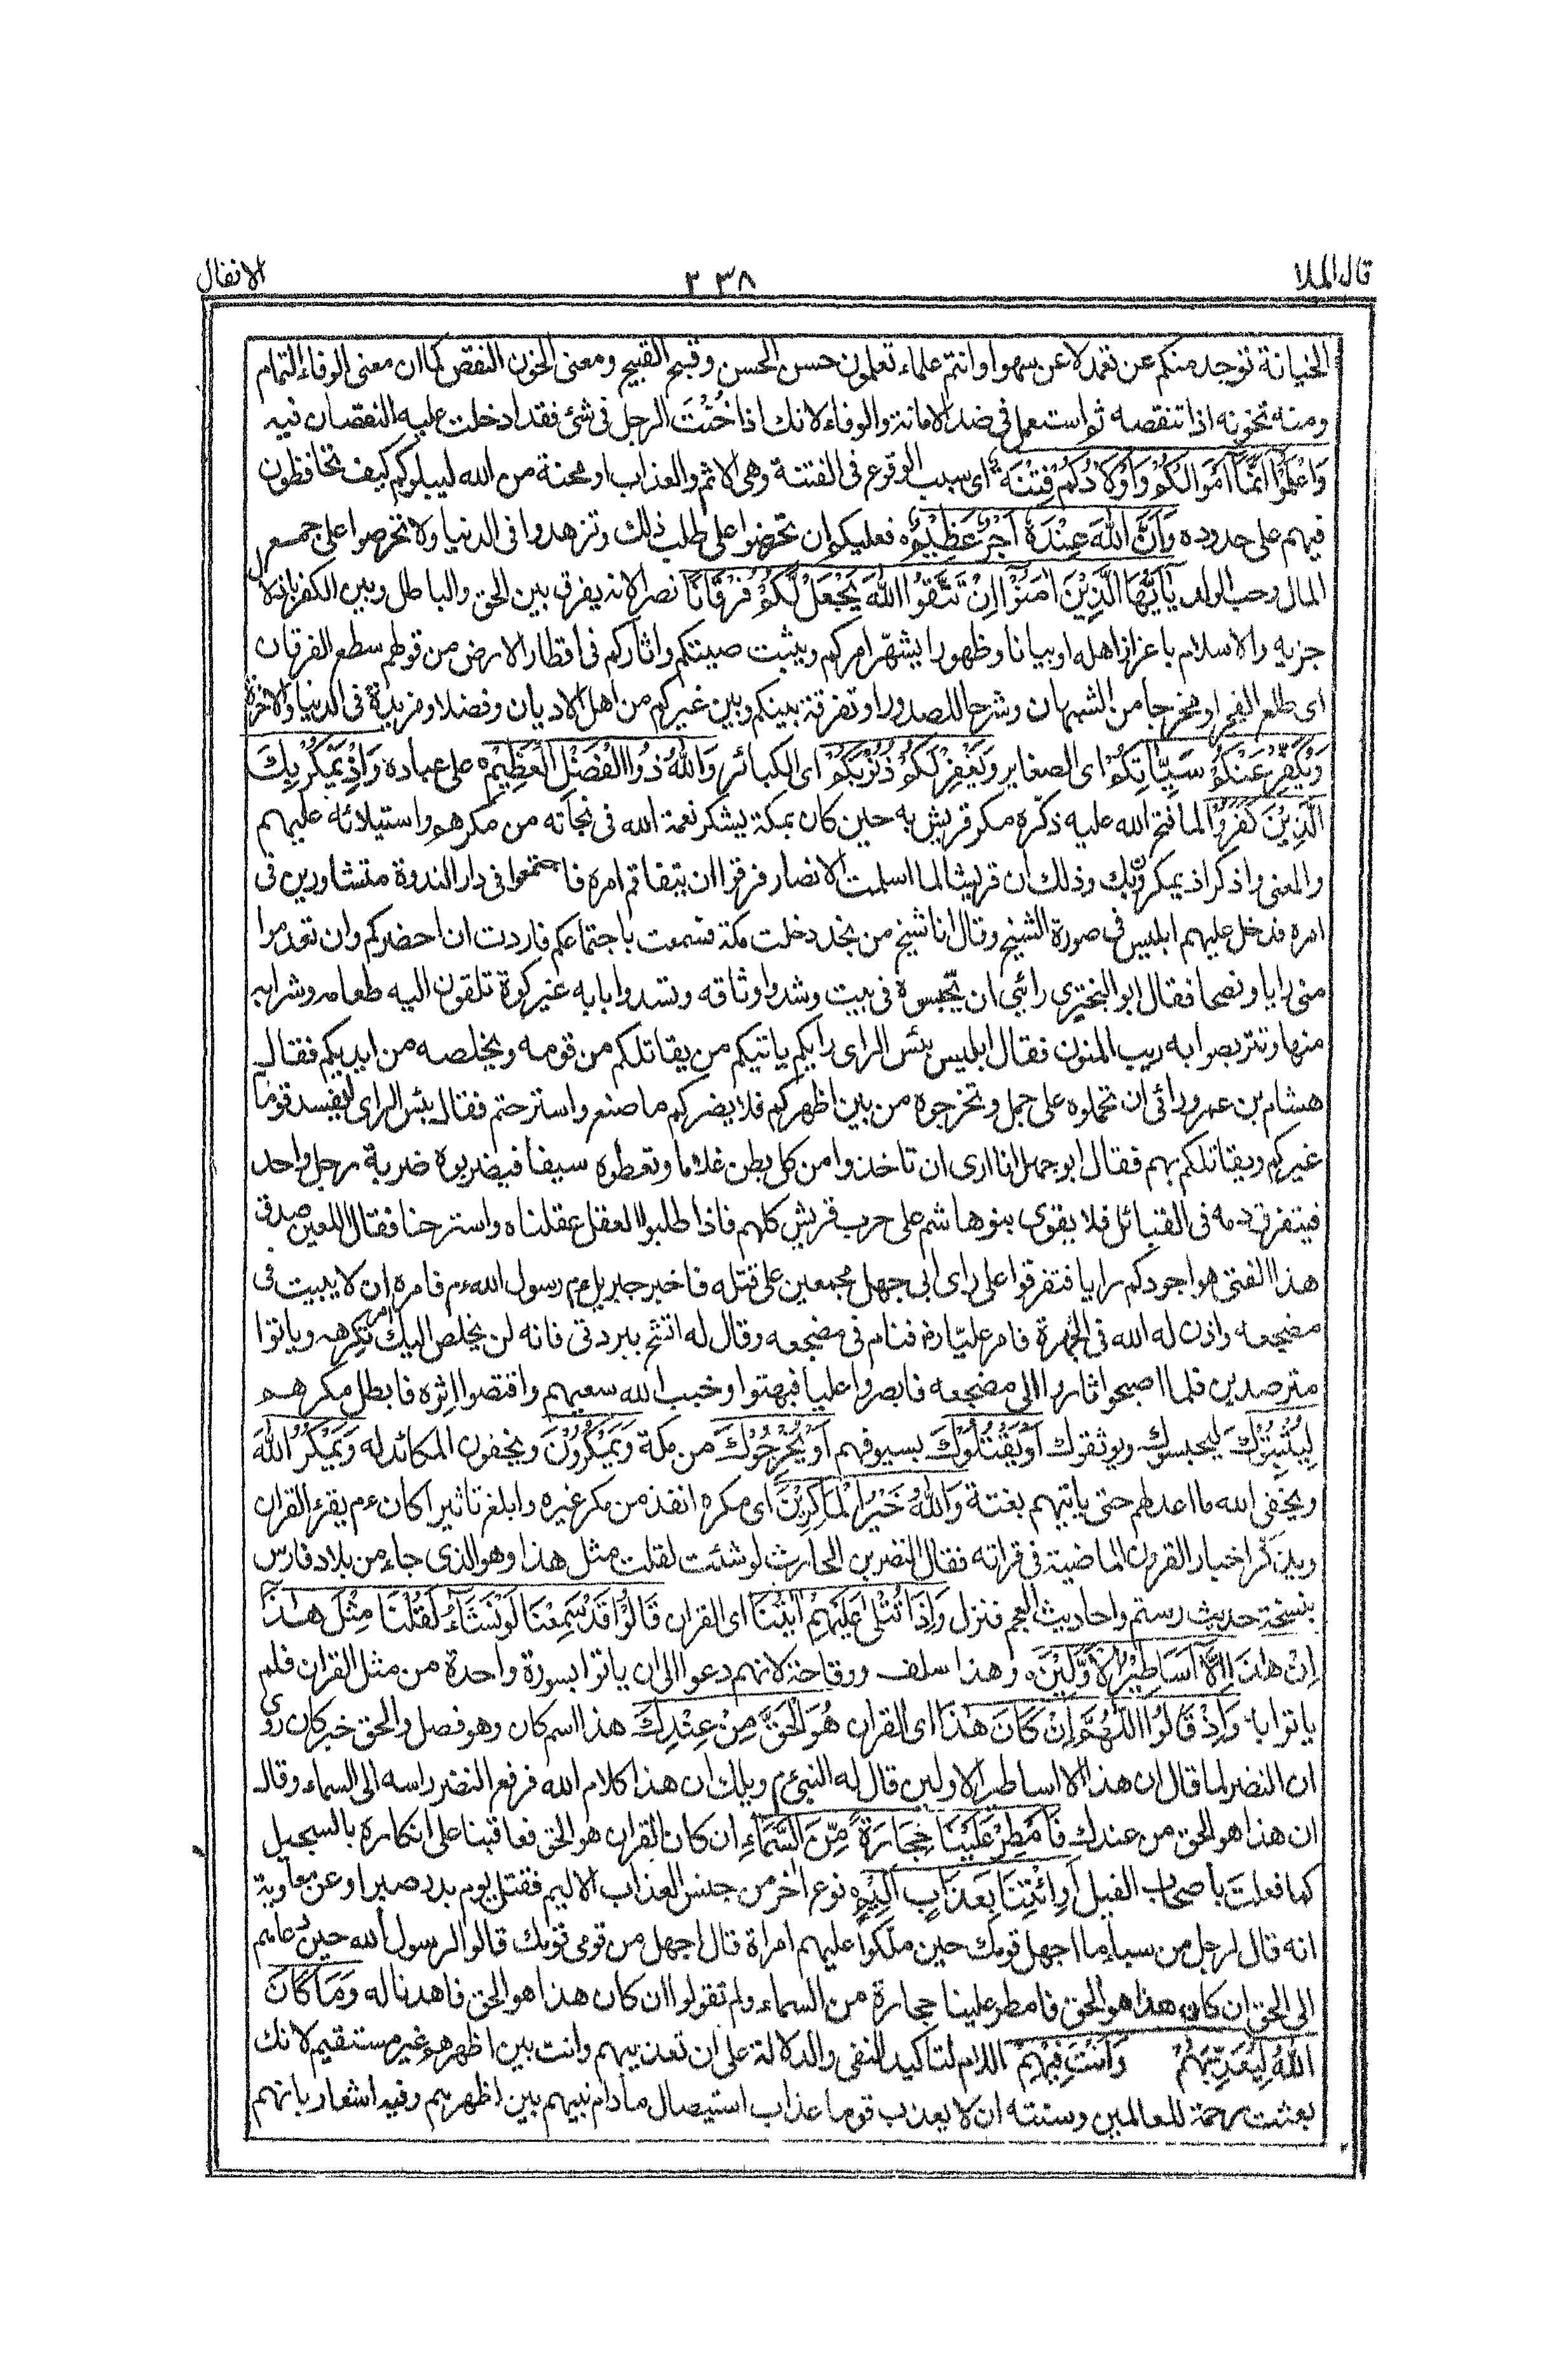 قال الملا ٣٣٨ الانفال
الخيانة توجد منكم عن تعمد لا عن سهو او انتم علماء تعلمون حسن الحسن وقبح القبيح ومعنى الخون النقص كما ان معنى الوفاء التمام
ومنه تخونه اذا تنقصه ثم استعمل فى ضد الامانة والوفاء لانك اذا خُنْتَ الرجل فى شئ فقد ادخلت عليه النقصان فيه
وَاعْلَمُوْٓا اَنَّمَآ اَمْوَالُكُمْ وَاَوْلَادُكُمْ فِتْنَةٌ اى سبب الوقوع فى الفتنة وهى الاثم والعذاب او محنة من الله ليبلوكم كيف تحافظون
فيهم على حدوده وَاَنَّ اللّٰهَ عِنْدَهٗٓ اَجْرٌ عَظِيْمٌ فعليكم ان تحرضوا على طلب ذلك وتزهدوا فى الدنيا ولا تحرصوا على جمع
المال وحب الولد يٰٓاَيُّهَا الَّذِيْنَ اٰمَنُوْٓا اِنْ تَتَّقُوا اللّٰهَ يَجْعَلْ لَّكُمْ فُرْقَانًا نصرا لانه يفرق بين الحق والباطل وبين الكفر باذلال
حزبه والاسلام باعزاز اهله او بيانا وظهورا يشهر امركم ويثبت صيتكم واثاركم فى اقطار الارض من قولهم سطع الفرقان
اى طلع الفجر او مخرجا من الشبهات وشرحا للصدور او تفرقة بينكم وبين غيركم من اهل الاديان وفضلا ومزية فى الدنيا والاخرة
وَيُكَفِّرْ عَنْكُمْ سَيِّاٰتِكُمْ اى الصغاير وَيَغْفِرْ لَكُمْ ذُنُوْبَكُمْ اى الكبائر وَاللّٰهُ ذُوا الْفَضْلِ الْعَظِيْمِ على عباده وَاِذْ يَمْكُرُ بِكَ
الَّذِيْنَ كَفَرُوْا لما فتح الله عليه ذكّره مكر قريش به حين كان بمكة ليشكر نعمة الله فى نجاته من مكرهم واستيلائه عليهم
والمعنى واذكر اذ يمكرون بك وذلك ان قريشا لما اسلمت الانصار فرقوا ان يتفاقم امره فاجتمعوا فى دار الندوة متشاورين فى
امره فدخل عليهم ابليس فى صورة الشيخ وقال انا شيخ من نجد دخلت مكة فسمعت باجتماعكم فاردت ان احضركم وان تعدموا
منى رايا ونصحا فقال ابو البخترى رائى ان تحبسوه فى بيت وشدوا وثاقه وتسدوا بابه غير كوة تلقون اليه طعامه وشرابه
منها وتتربصوا به ريب المنون فقال ابليس بئس الراى رايكم ياتيكم من يقاتلكم من قومه ويخلصه من ايديكم فقال
هشام بن عمرو رائى ان تحملوه على جمل وتخرجوه من بين اظهركم فلا يضركم ما صنع واسترحتم فقال بئس الراى يفسد قوما
غيركم ويقاتلكم بهم فقال ابو جهل انا ارى ان تاخذوا من كل بطن غلاما وتعطوه سيفا فيضربوه ضربة رجل واحد
فيتفرق دمه فى القبائل فلا يقوى بنو هاشم على حرب قريش كلهم فاذا طلبوا العقل عقلناه واسترحنا فقال اللعين صدق
هذا الفتى هو اجودكم رايا فتفرقوا على راى ابى جهل مجمعين على قتله فاخبر جبريل ءم رسول الله ءم فامره ان لا يبيت فى
مضجعه واذن له الله فى الهجرة فامر عليا رض فنام فى مضجعه وقال له اتشح ببردتى فانه لن يخلص اليك امر تكرهه وباتوا
مترصدين فلما اصبحوا ثاروا الى مضجعه فابصروا عليا فبهتوا وخيب الله سعيهم واقتصوا اثره فابطل مكرهم
لِيُثْبِتُوْكَ ليحبسوك ويوثقوك اَوْ يَقْتُلُوْكَ بسيوفهم اَوْ يُخْرِجُوْكَ من مكة وَيَمْكُرُوْنَ ويخفون المكائد له وَيَمْكُرُ اللّٰهُ
ويخفى الله ما اعد لهم حتى ياتيهم بغتة وَاللّٰهُ خَيْرُ الْمَاكِرِيْنَ اى مكره انفذ من مكر غيره وابلغ تاثيرا كان ءم يقرء القران
ويذكر اخبار القرون الماضية فى قراته فقال النضر بن الحارث لو شئت لقلت مثل هذا وهو الذى جاء من بلاد فارس
بنسخة حديث رستم واحاديث العجم فنزل وَاِذَا تُتْلٰى عَلَيْهِمْ اٰيٰتُنَا اى القران قَالُوْا قَدْ سَمِعْنَا لَوْ نَشَآءُ لَقُلْنَا مِثْلَ هٰذَآ
اِنْ هٰذَآ اِلَّآ اَسَاطِيْرُ الْاَوَّلِيْنَ وهذا سلف ووقاحة لانهم دعوا الى ان ياتوا بسورة واحدة من مثل القران فلم
ياتوا به وَاِذْ قَالُوا اللّٰهُمَّ اِنْ كَانَ هٰذَا اى القران هُوَ الْحَقَّ مِنْ عِنْدِكَ هذا اسم كان وهو فصل والحق خبر كان روى
ان النضر لما قال ان هذا الا اساطير الاولين قال له النبى ءم ويلك ان هذا كلام الله فرفع النضر راسه الى السماء وقال
ان هذا هو الحق من عندك فَاَمْطِرْ عَلَيْنَا حِجَارَةً مِّنَ السَّمَآءِ ان كان القران هو الحق فعاقبنا على انكاره بالسجيل
كما فعلت باصحاب الفيل اَوِ ائْتِنَا بِعَذَابٍ اَلِيْمٍ نوع اخر من جنس العذاب الاليم فقتل يوم بدر صبرا وعن معاوية
انه قال لرجل من سبا ما اجهل قومك حين ملّكوا عليهم امراة قال اجهل من قومى قومك قالوا لرسول الله حين دعاهم
الى الحق ان كان هذا هو الحق فامطر علينا حجارة من السماء ولم تقولوا ان كان هذا هو الحق فاهدنا له وَمَا كَانَ
اللّٰهُ لِيُعَذِّبَهُمْ وَاَنْتَ فِيْهِمْ اللام لتاكيد النفى والدلالة على ان تعذيبهم وانت بين اظهرهم غير مستقيم لانك
بعثت رحمة للعالمين وسنته ان لا يعذب قوما عذاب استيصال ما دام نبيهم بين اظهرهم وفيه اشعار بانهم